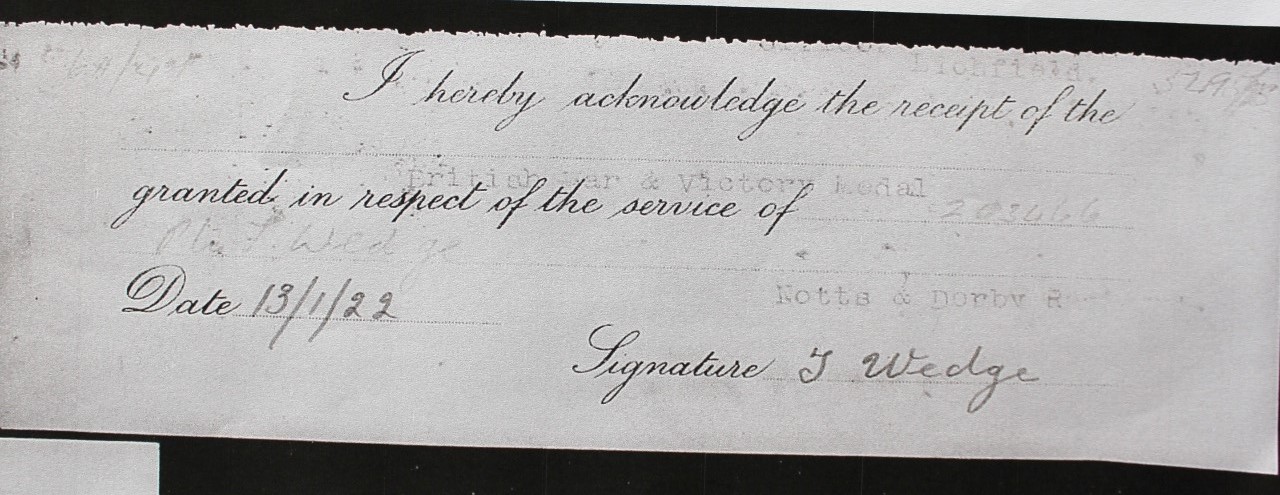 Lichfield.
I hereby acknowledge the receipt of the
British War & Victory Medal
granted in respect of the service of 203466
Pte T. Wedge
Date 13/1/22
Notts & Derby R
Signature T Wedge